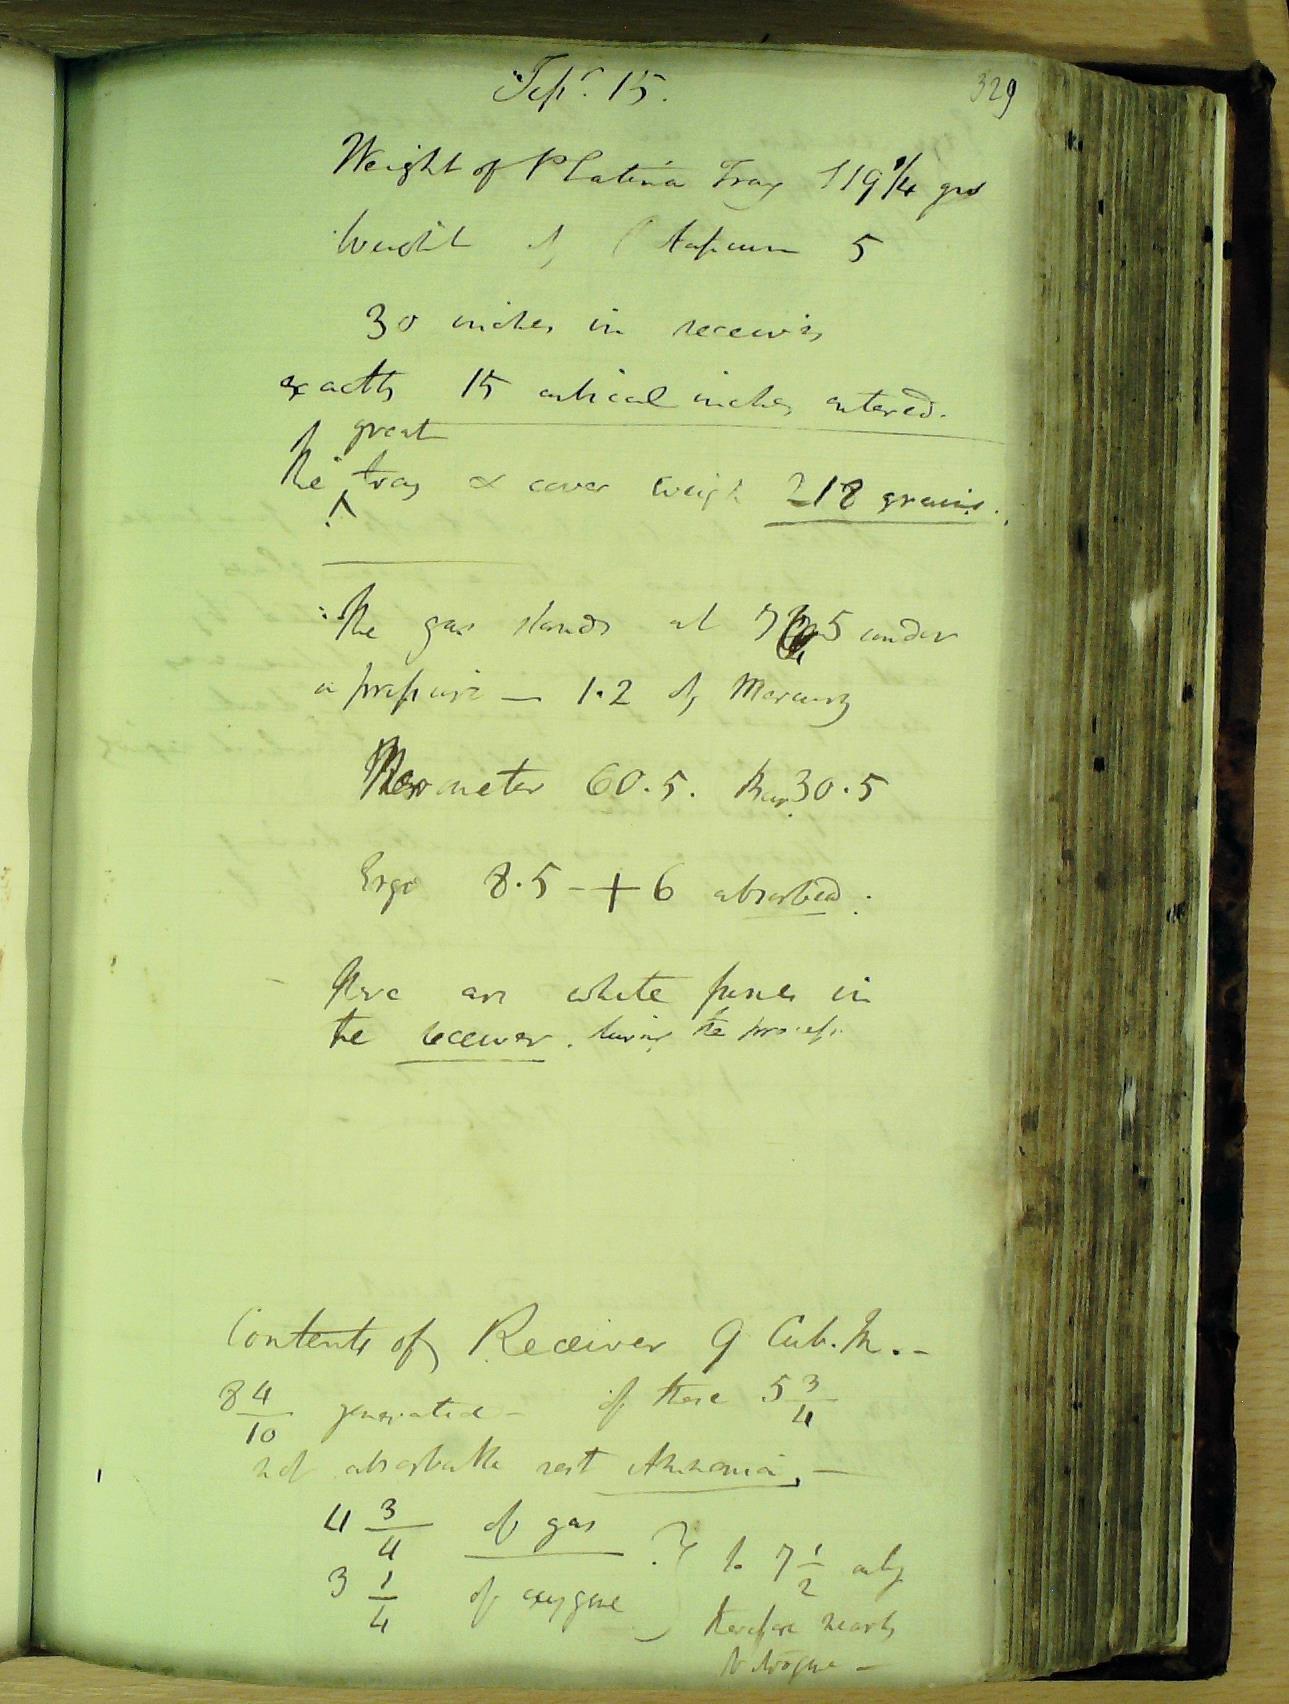 Sepr. 15.
329
Weight of Platina Tray 119 1/4 grs
Weight of Potassium 5
30 inches in receiver
exactly 15 cubical inches entered.
great
The tray & cover weigh 218 grains.
The gas stands at 7 .5 under
a pressure — 1.2 of Mercury
Thermometer 60.5. Bar. 30.5
Ergo 8.5 - + 6 absorbed.
There are white fumes in
the receiver. during the process.
Contents of Receiver 9 Cub. In. -
8 4/10 generated - of these 5 3/4
not absorbable rest Ammonia, —
4 3/4 of gas
3 1/4 of oxygene
to 7 1/2 only
therefore nearly
Nitrogene —